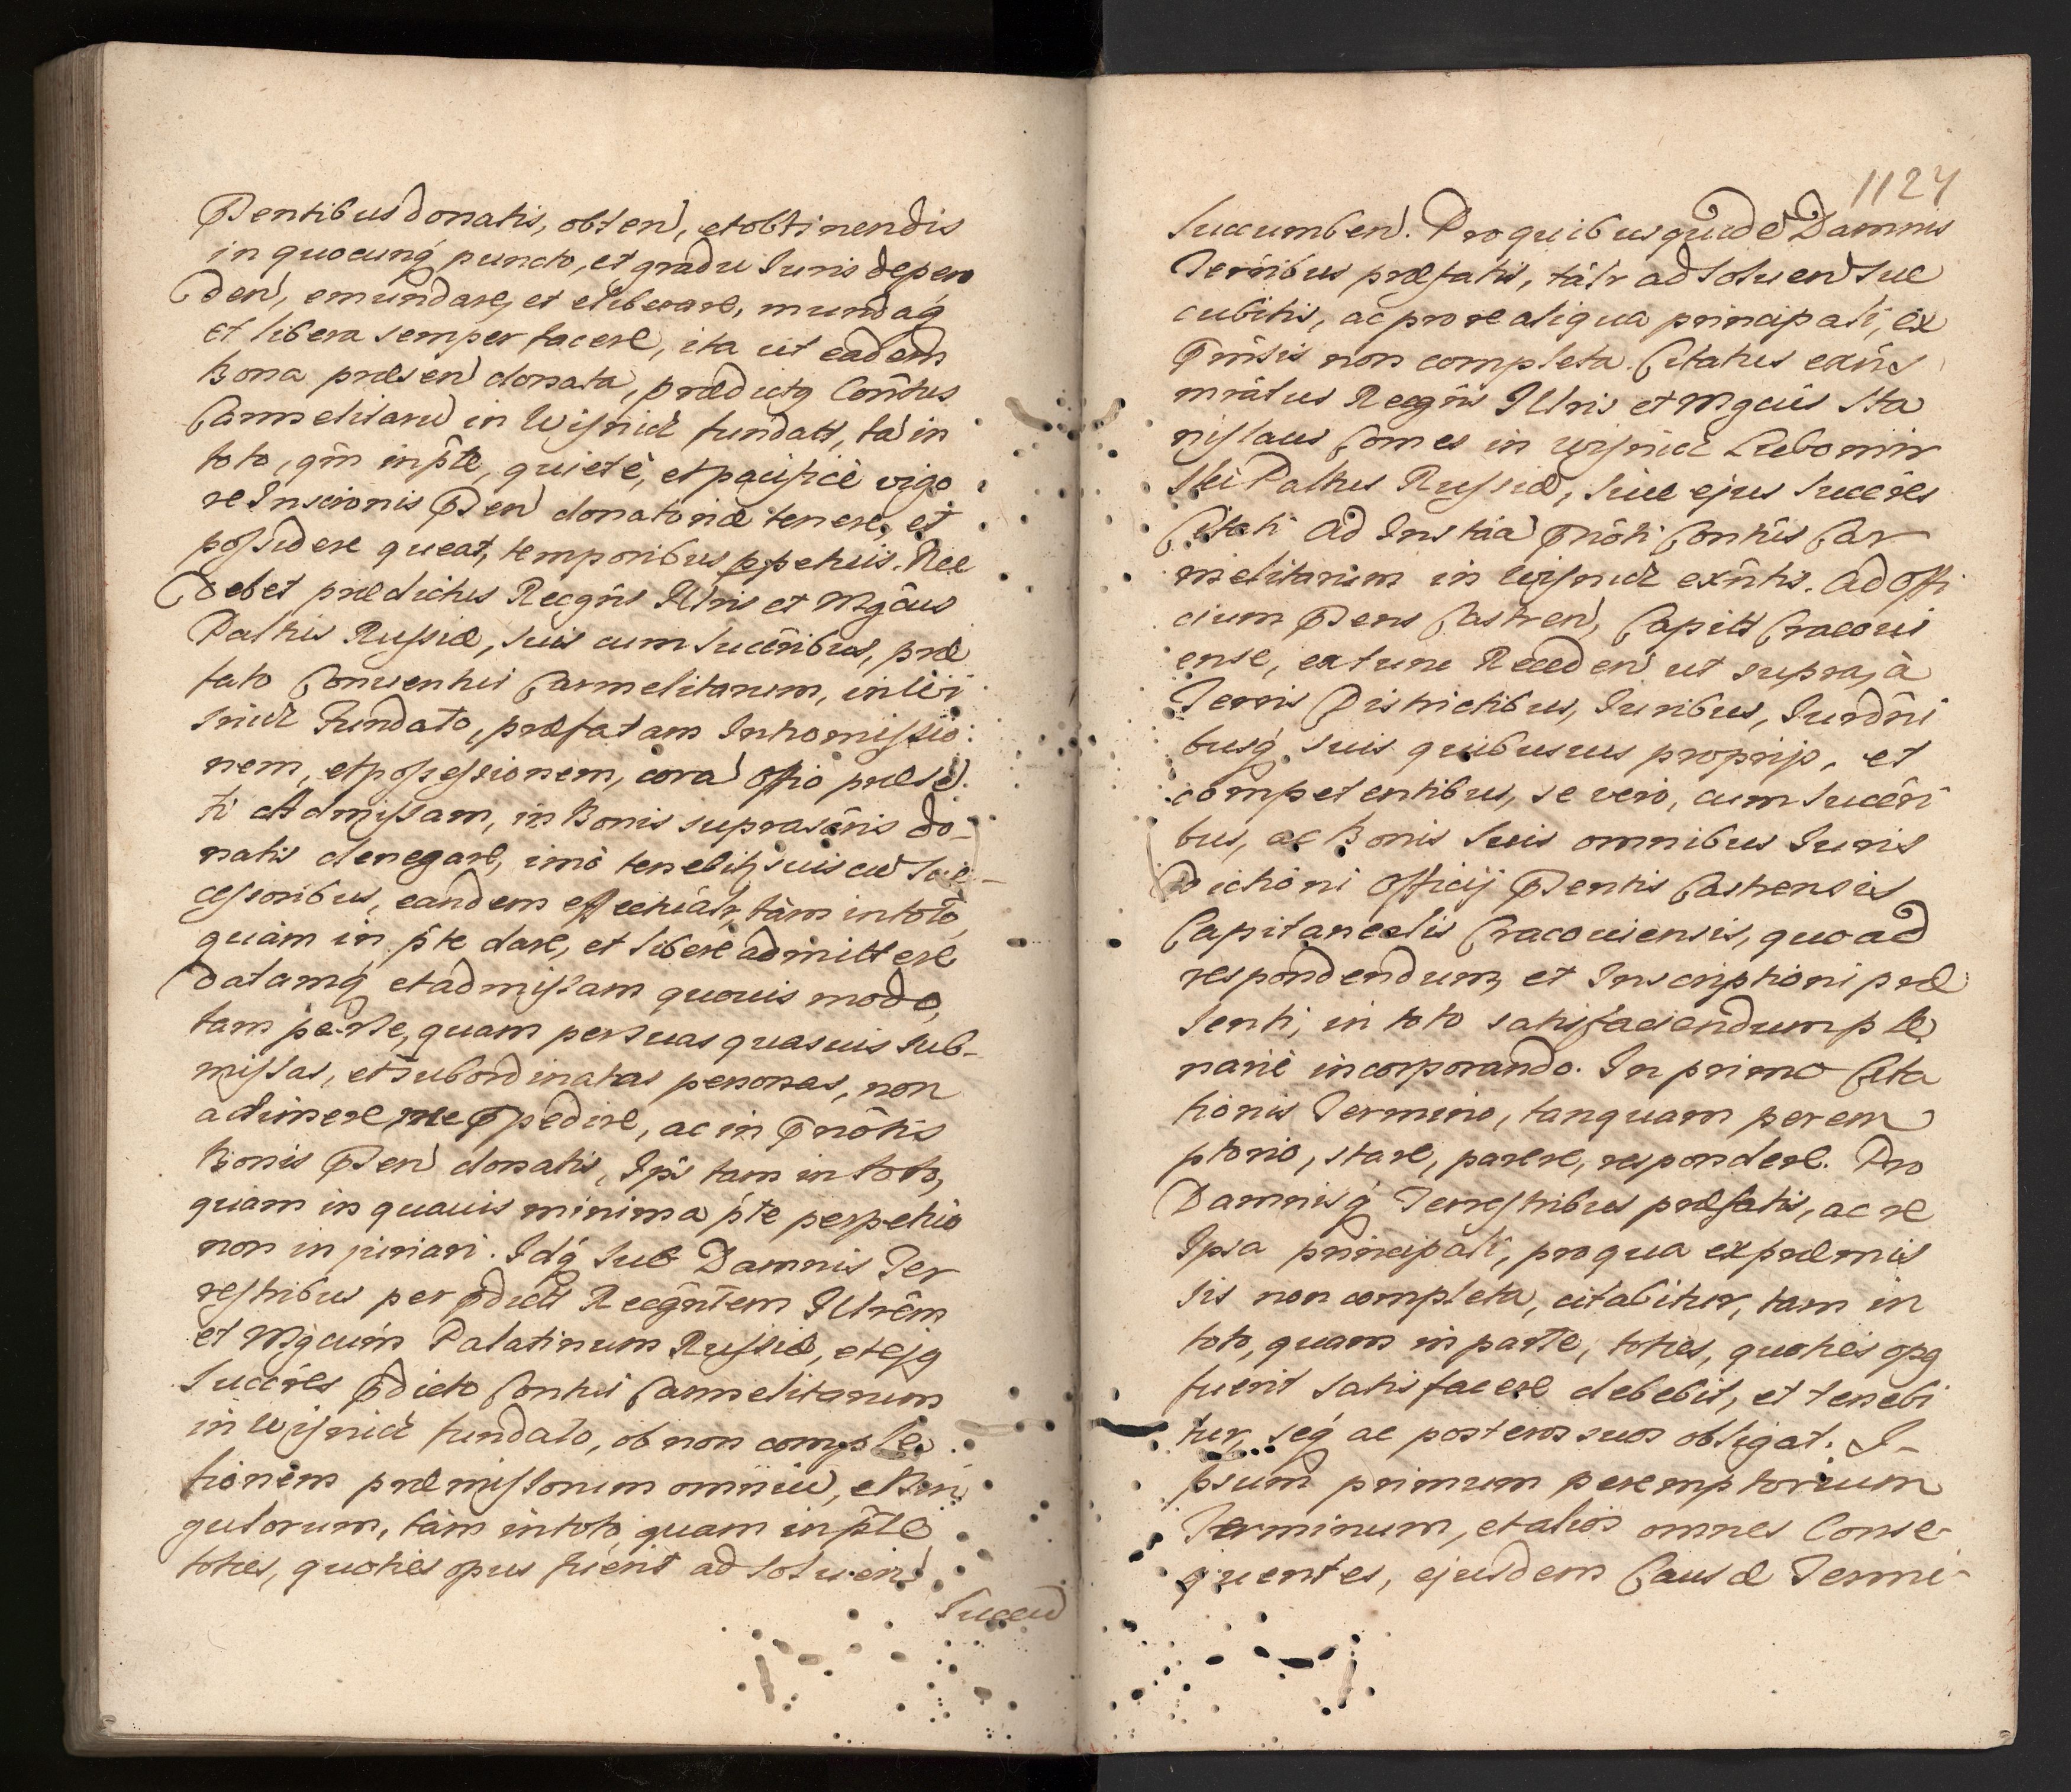 Psentibus donatis, obten, et obtinendis
in quocunq puncto, et gradu Iuris depen
den, emundare, et eliberare, mundaq
et libera semper facere, ita ut eadem
Bona præsen donata, prædictq Conûtus
Carmelitaru in Wisnicz fundatt, tà in
toto, qm in pte, quietè, et pacificè vigo
re Inscrionis Psen donatoriæ tenere, et
possidere queat, temporibus ppetuis. Nec
debet prædictus Recgns Illris et Mgcus
Paltus Russiæ, suis cum succribus, præ
fato Conventui Carmelitarum, in Wi
snicz Fundato, præfatam Intromissio
nem, et possessionem, cora Offio præse
ti Admissam, in Bonis suprascris do-
natis denegare, imò tenebitq suis cu suc-
cessoribus, eandem effectualr, tàm in toto,
quàm in pte dare, et liberè admittere
datamq et admissam quovis modo,
tam per se, quam per suas quasvis sub-
missas, et subordinatas personas, non
adimere nec Ppedire, ac in Pnôtis
Bonis Psen donatis, Ipsi tam in toto,
quàm in quavis minima pte perpetuò
non injuriari. Idq sub Damnis Ter
restribus per pdictt Recgntem Illrem
et Mgcum Palatinum Russiæ, et ejq
succres pdicto Contui Carmelitarum
in Wisnicz fundato, ob non comple
tionem præmissorum omniu, et sin
gulorum, tàm in toto, quam in pte
toties, quoties opus fuerit ad solven
succu
1127
succumben. Pro quibus quide Damnis
Terribus præfatis, tàlr ad solven suc
cubitis, ac pro re aliqua principali, ex
Pmssis non completa. Citatus exns
mratus Recgns Illris et Mgcus Sta
nislaus Comes in Wisnicz Lubomir
ski Paltus Russiæ, sive ejus succres
Citati ad Instia Pnôti Contûs Car
melitarum in Wisnicz exntis. Ad Offi
cium Psens Castren, Capitt Cracovi
ense, ex tunc Receden ut supra, à
Terris Districtibus, Iuribus, Iurdni
busq suis quibusvis proprijs, et
competentibus, se vero, cum succri
bus, ac Bonis suis omnibus Iuris
dictioni Officij Psentis Castrensis
Capitanealis Cracoviensis, quo ad
respondendum, et Inscriptioni præ
senti, in toto satisfaciendum ple
nariè incorporando. In primo Cita
tionis Termino, tanquam perem
ptorio, stare, parere, respondere. Pro
Damnisq Terrestribus præfatis, ac re
Ipsa principali, pro qua ex præmis
sis non completa, citabitur, tam in
toto, quam in parte, toties, quoties opq
fuerit satisfacere debebit, et tenebi
tur, seq ac posteros suos obligat. I-
psum primum peremptorium
Terminum, et alios omnes Conse-
quentes, ejusdem Causæ Termi-